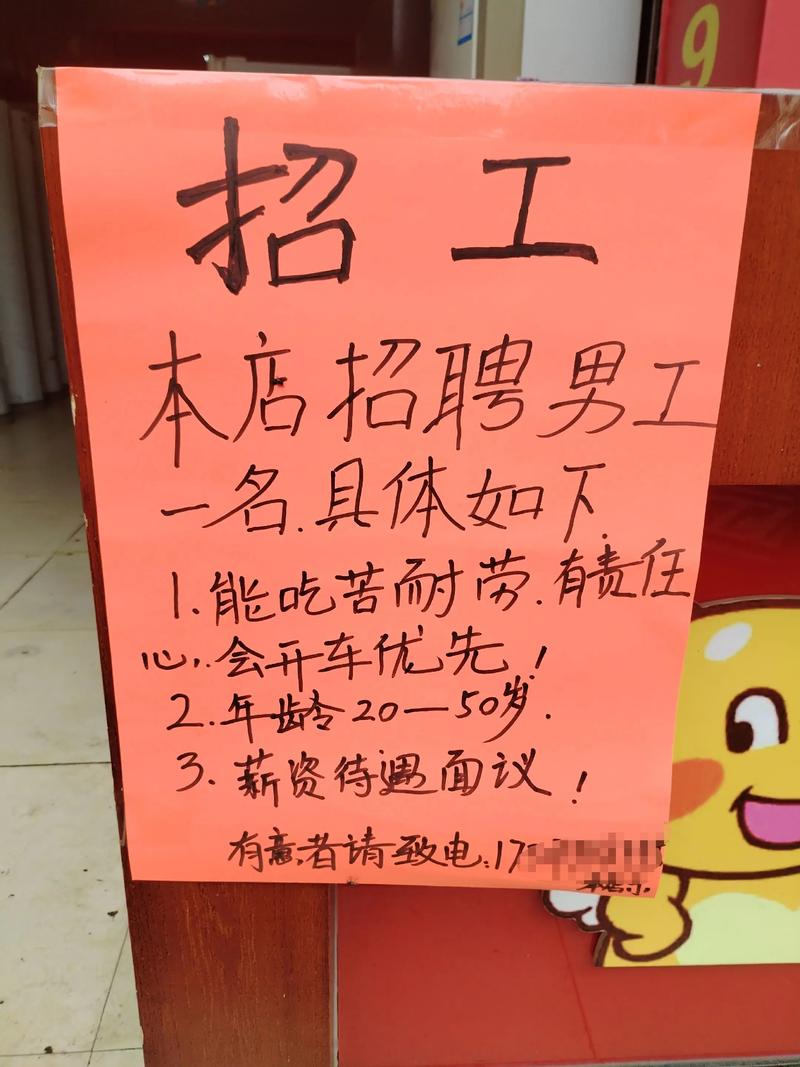 9
招工
本店招聘男工
一名.具体如下.
1.能吃苦耐劳.有责任
心,.会开车优先!
2.年龄20—50岁.
3.薪资待遇面议!
有意者请致电:17
本店示